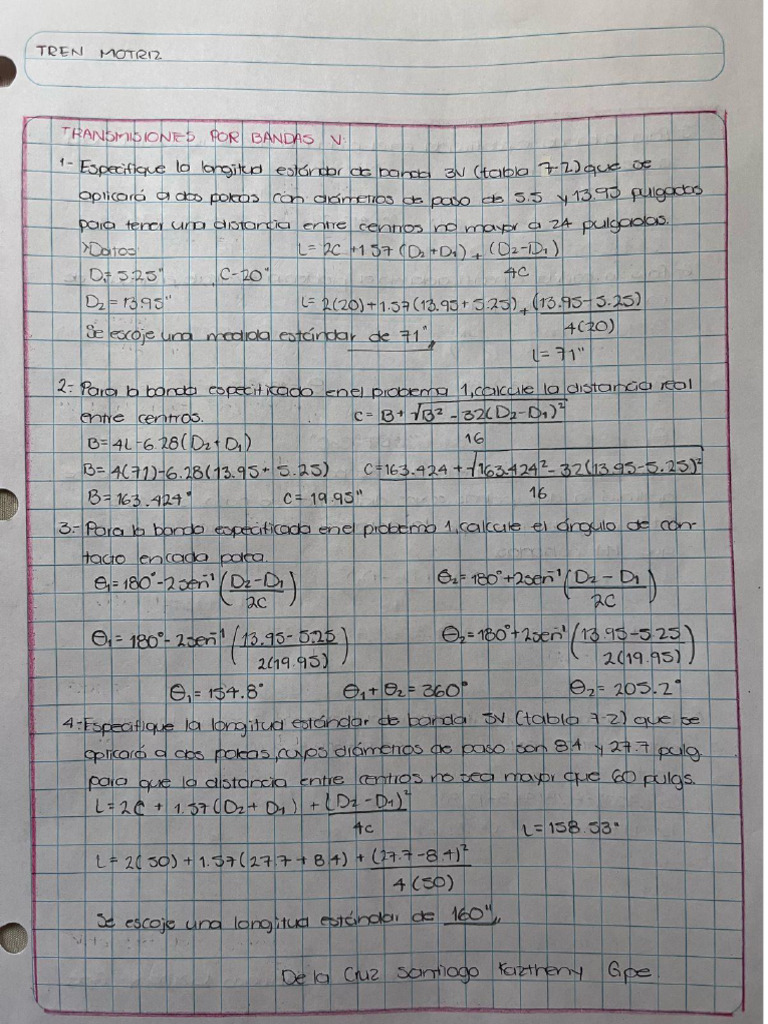 TREN MOTRIZ
TRANSMISIONES POR BANDAS V:
1.- Especifique la longitud estándar de banda 3V (tabla 7-2) que se
aplicará a dos poleas con diámetros de paso de 5.5 y 13.95 pulgadas
para tener una distancia entre centros no mayor a 24 pulgadas.
>Datos L= 2C +1.57 (D2+D1) + (D2-D1)
4C
D1= 5.25" C-20"
D2= 13.95" L= 2(20)+1.57(13.95+5.25) + (13.95-5.25)
4(20)
Se escoje una medida estándar de 71",
L= 71"
2.- Para la banda especificada en el problema 1, calcule la distancia real
entre centros. C= B+√B²-32(D2-D1)²
16
B= 4L-6.28(D2+D1)
B= 4(71)-6.28(13.95+5.25) C=163.424+√163.424²-32(13.95-5.25)²
16
B= 163.424" C= 19.95"
3.- Para la banda especificada en el problema 1, calcule el ángulo de con-
tacto en cada polea.
θ1=180°-2sen⁻¹(D2-D1/2C) θ2=180°+2sen⁻¹(D2-D1/2C)
θ1=180°-2sen⁻¹(13.95-5.25/2(19.95)) θ2=180°+2sen⁻¹(13.95-5.25/2(19.95))
θ1=154.8° θ1+θ2=360° θ2=205.2°
4.- Especifique la longitud estándar de banda 3V (tabla 7-2) que se
aplicará a dos poleas, cuyos diámetros de paso son 8.4 y 27.7 pulg.
para que la distancia entre centros no sea mayor que 60 pulgs.
L= 2C + 1.57(D2+D1) + (D2-D1)²
4C
L= 158.53"
L= 2(50)+1.57(27.7+8.4)+(27.7-8.4)²
4(50)
Se escoje una longitud estándar de 160",
De la Cruz Santiago Kaztheny Gpe.